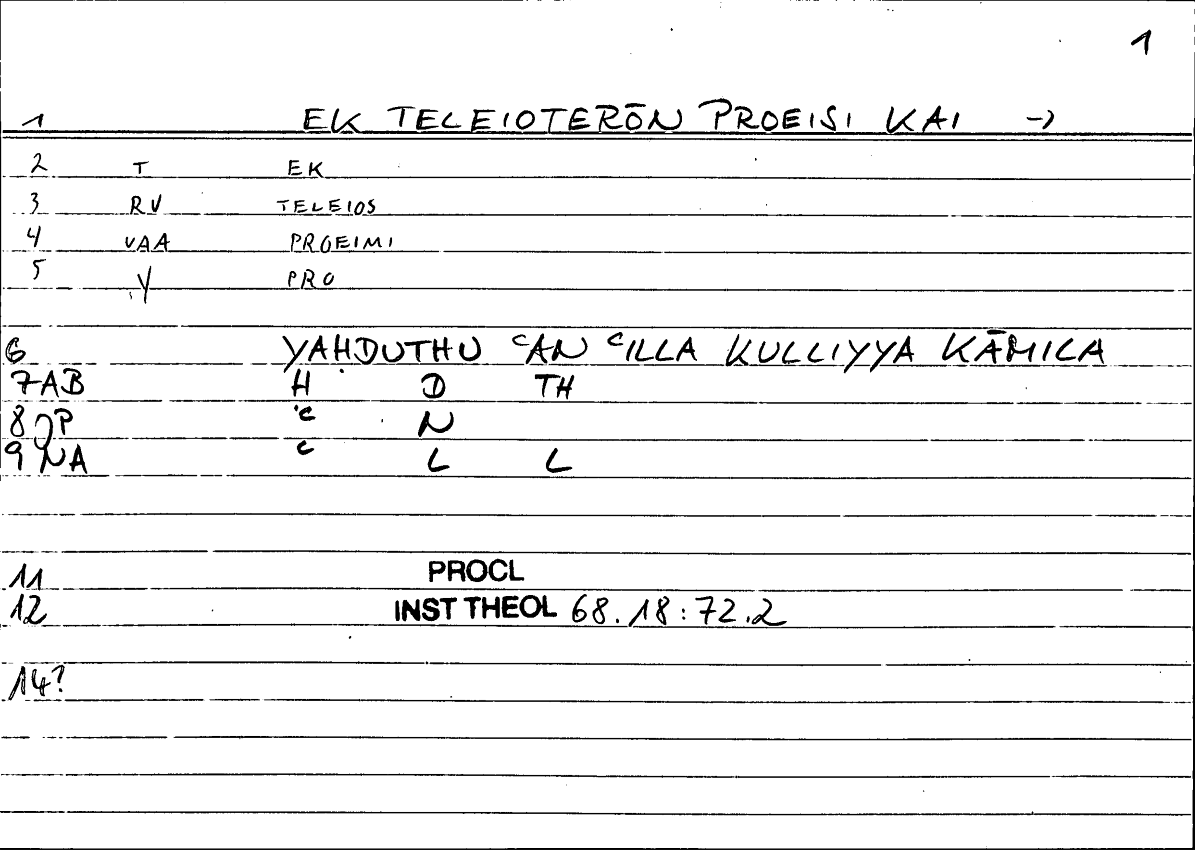 1
1 EK TELEIOTERŌN PROEISI KAI →
2 T EK
3 RV TELEIOS
4 VAA PROEIMI
5 Y PRO
6 YAḤDUTHU ʿAN ʿILLA KULLIYYA KĀMILA
7 AB Ḥ D TH
8 OP ʿ N
9 NA ʿ L L
11 PROCL
12 INST THEOL 68.18:72.2
14?